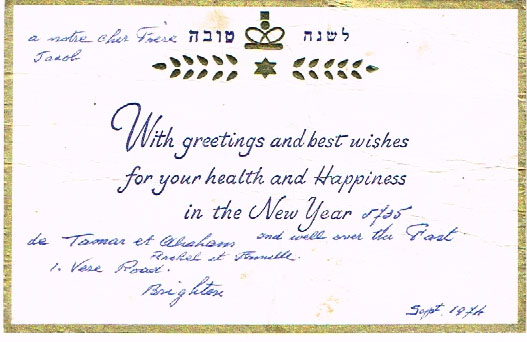 לשנה טובה
a notre cher Frère
Jacob
With greetings and best wishes
for your health and Happiness
in the New Year 5735
and well over the Fast
de Tamar et Abraham
Rachel et
1. Vere Road.
Brighton
Sept. 1974